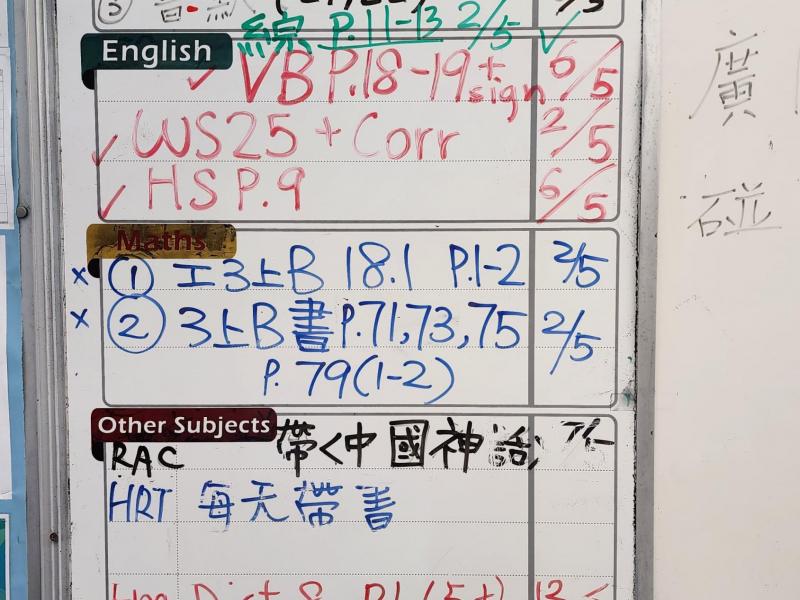 綜 P.11-13 2/5 ✓
English
✓ VB P.18-19 + sign 6/5
✓ WS25 + Corr 2/5
✓ HS P.9 6/5
Maths
x ① 工3上B 18.1 P.1-2 2/5
x ② 3上B書P.71,73,75 2/5
P.79(1-2)
Other Subjects
RAC 帶<中國神話
HRT 每天帶書
廣
碰